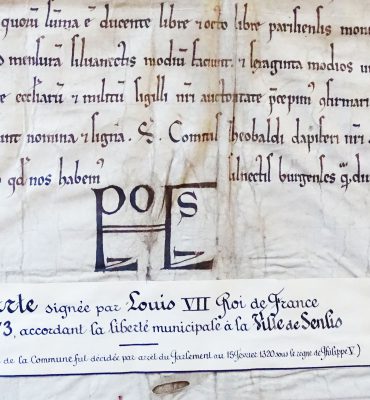 quorū sūma ē ducente libre & octo libre parisiensis mon
mensura silvanectis modiū faciunt & sexaginta modios
eccliarū & militū sigilli nri auctoritate p̄cepim' 9firmari
nomina & signa. S. Comitis Theobaldi dapiferi nri.
qd nos habem' silvnectis burgenses q,
POES
rte signée par Louis VII Roi de France
73, accordant la liberté municipale à la Ville de Senlis
de la Commune fut décidée par arrêt du Parlement au 15 février 1320 sous le règne de Philippe V)